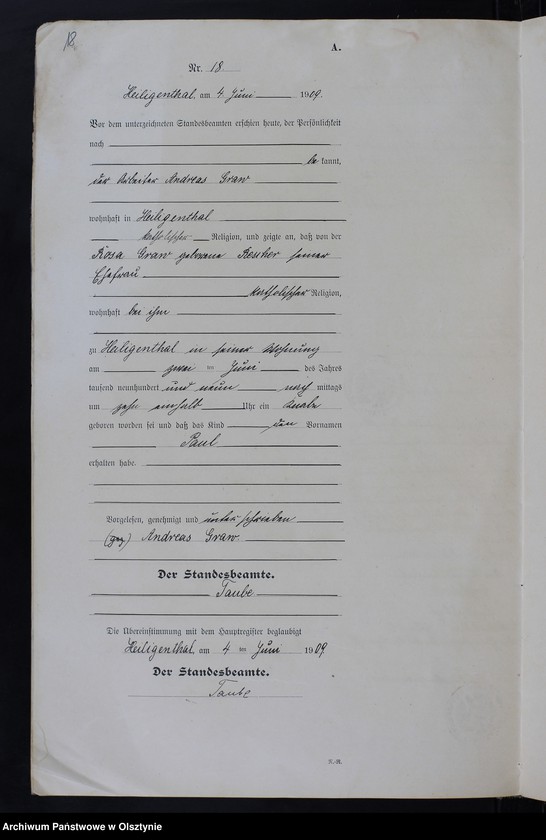 18
A.
Nr. 18
Heiligenthal, am 4 Juni 1909.
Vor dem unterzeichneten Standesbeamten erschien heute, der Persönlichkeit
nach
be kannt,
der Arbeiter Andreas Graw
wohnhaft in Heiligenthal
katholischer Religion, und zeigte an, daß von der
Rosa Graw geborene seiner
Ehefrau
katholischer Religion,
wohnhaft bei ihm
zu Heiligenthal in seiner Wohnung
am zwei ten Juni des Jahres
tausend neunhundert und neun nach mittags
um zehn einhalb Uhr ein Knabe
geboren worden sei und daß das Kind den Vornamen
Paul
erhalten habe.
Vorgelesen, genehmigt und unterschrieben
(gez) Andreas Graw.
Der Standesbeamte.
Taube
Die Übereinstimmung mit dem Hauptregister beglaubigt
Heiligenthal, am 4 ten Juni 1909
Der Standesbeamte.
Taube
Archiwum Państwowe w Olsztynie